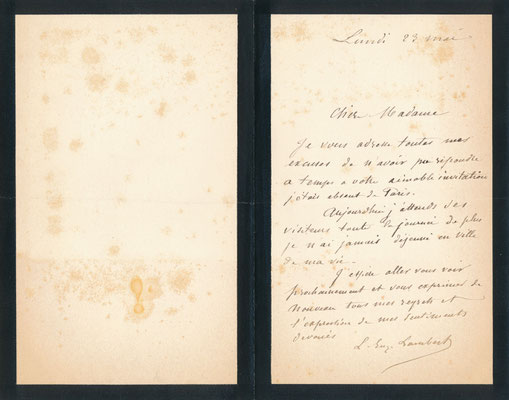 Lundi 23 mai
Chère Madame
Je vous adresse toutes mes
excuses de n'avoir pu répondre
a temps a votre aimable invitation
j'étais absent de Paris.
Aujourd'hui j'attends des
visiteurs toute la journée de plus
je n'ai jamais déjeuné en ville
de ma vie.
J'espère aller vous voir
prochainement et vous exprimer de
nouveau tous mes regrets et
l'expression de mes sentiments
dévoués
L. Eug. Lambert